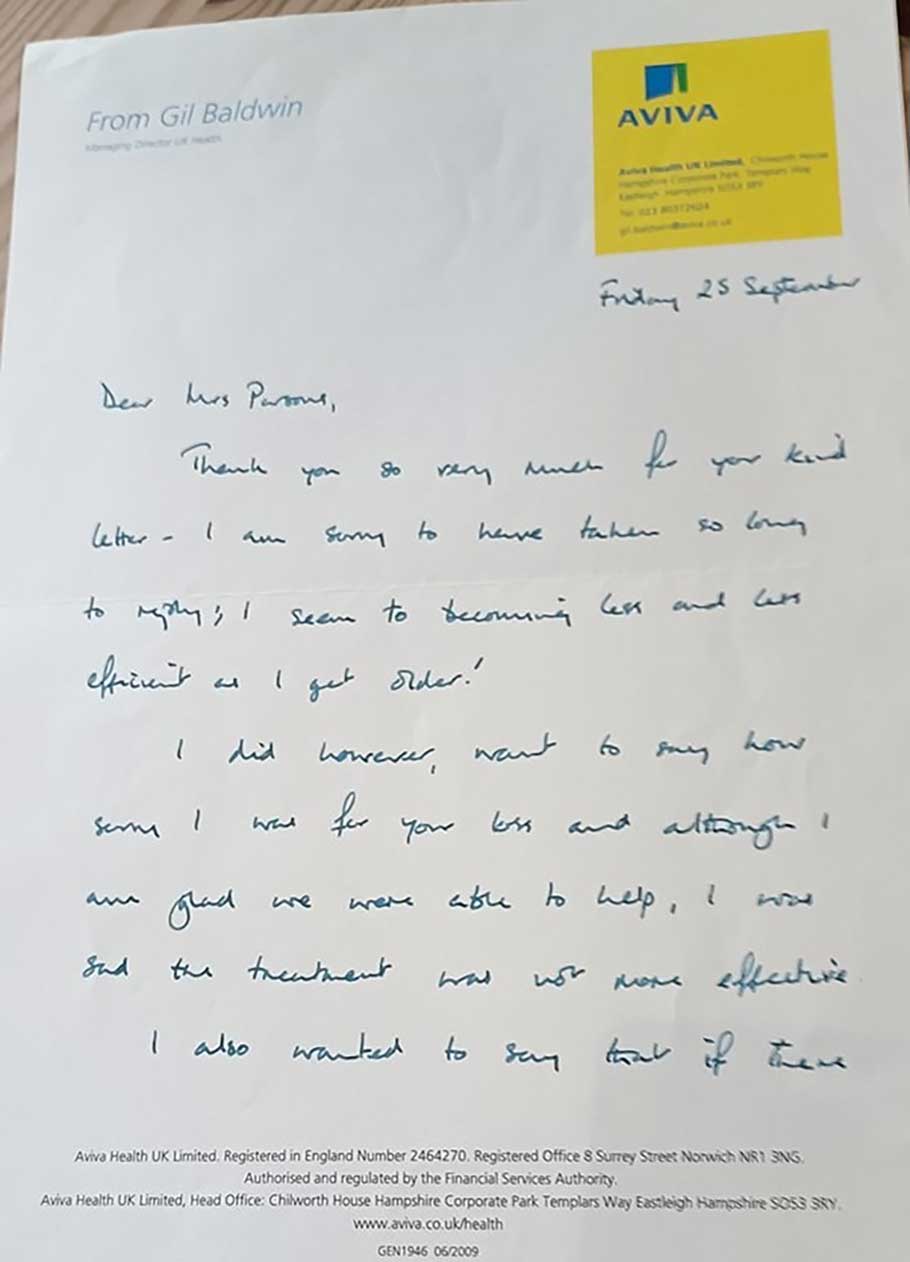 From Gil Baldwin
Managing Director UK Health
AVIVA
Aviva Health UK Limited, Chilworth House
Hampshire Corporate Park, Templars Way
Eastleigh, Hampshire SO53 3RY
Tel: 023 80372624
gil.baldwin@aviva.co.uk
Friday 25 September
Dear Mrs Parsons,
Thank you so very much for your kind
letter - I am sorry to have taken so long
to reply; I seem to becoming less and less
efficient as I get older!
I did however, want to say how
sorry I was for your loss and although I
am glad we were able to help, I was
sad the treatment was not more effective.
I also wanted to say that if there
Aviva Health UK Limited. Registered in England Number 2464270. Registered Office 8 Surrey Street Norwich NR1 3NG.
Authorised and regulated by the Financial Services Authority.
Aviva Health UK Limited, Head Office: Chilworth House Hampshire Corporate Park Templars Way Eastleigh Hampshire SO53 3RY.
www.aviva.co.uk/health
GEN1946 06/2009